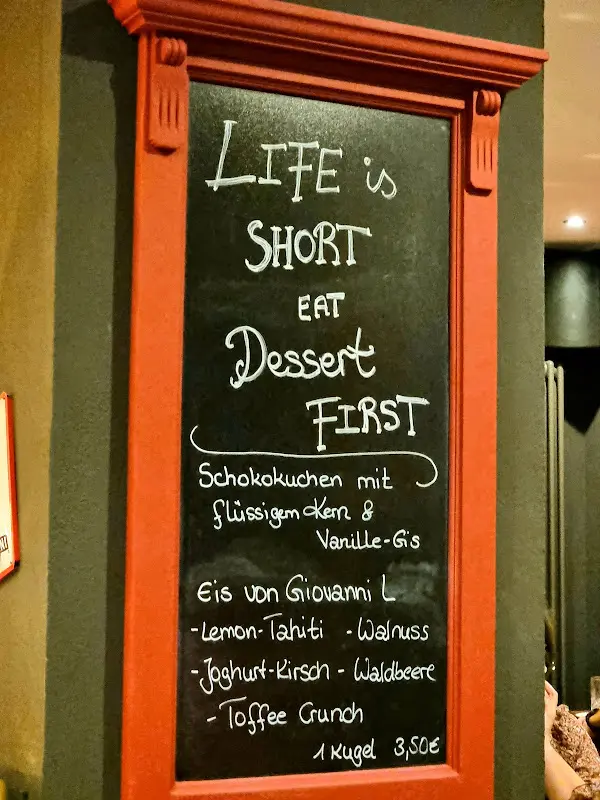 LIFE is
SHORT
EAT
Dessert
FIRST
Schokokuchen mit
flüssigem Kern &
Vanille-Eis
Eis von Giovanni L
-Lemon-Tahiti -Walnuss
-Joghurt-Kirsch -Waldbeere
-Toffee Crunch
1 Kugel 3,50€